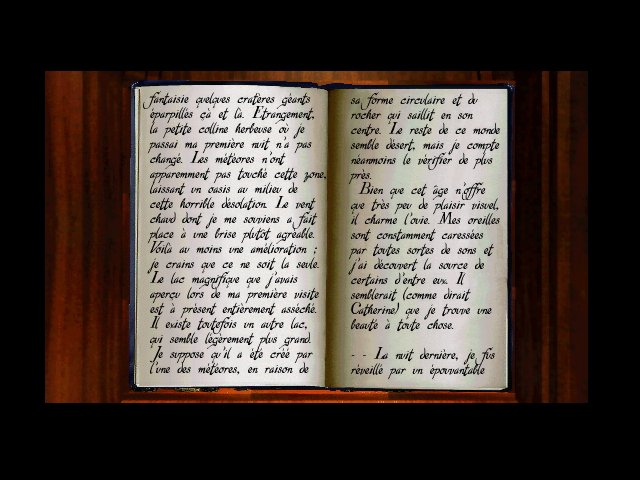 fantaisie quelques cratères géants
éparpillés çà et là. Etrangement,
la petite colline herbeuse où je
passai ma première nuit n'a pas
changé. Les météores n'ont
apparemment pas touché cette zone,
laissant un oasis au milieu de
cette horrible désolation. Le vent
chaud dont je me souviens a fait
place à une brise plutôt agréable.
Voilà au moins une amélioration ;
je crains que ce ne soit la seule.
Le lac magnifique que j'avais
aperçu lors de ma première visite
est à présent entièrement asséché.
Il existe toutefois un autre lac,
qui semble légèrement plus grand.
Je suppose qu'il a été créé par
l'une des météores, en raison de
sa forme circulaire et du
rocher qui saillit en son
centre. Le reste de ce monde
semble désert, mais je compte
néanmoins le vérifier de plus
près.
Bien que cet âge n'offre
que très peu de plaisir visuel,
il charme l'ouïe. Mes oreilles
sont constamment caressées
par toutes sortes de sons et
j'ai découvert la source de
certains d'entre eux. Il
semblerait (comme dirait
Catherine) que je trouve une
beauté à toute chose.
- - La nuit dernière, je fus
réveillé par un épouvantable